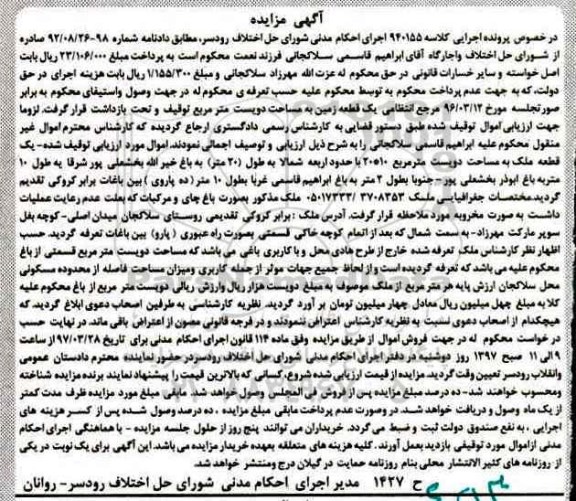 آگهی مزایده
در خصوص پرونده اجرایی کلاسه ۹۴۰۱۵۵ اجرای احکام مدنی شورای حل اختلاف رودسر، مطابق دادنامه شماره ۹۸-۹۲/۰۸/۲۶ صادره
از شورای حل اختلاف واجارگاه آقای ابراهیم قاسمی سلاکجانی فرزند نعمت محکوم است به پرداخت مبلغ ۲۳/۱۰۶/۰۰۰ ریال بابت
اصل خواسته و سایر خسارات قانونی در حق محکوم له عزت الله مهرزاد سلاکجانی و مبلغ ۱/۱۵۵/۳۰۰ ریال بابت هزینه اجرای در حق
دولت، که به جهت عدم پرداخت محکوم به توسط محکوم علیه حسب تعرفه ی محکوم له در جهت وصول واستیفای محکوم به برابر
صورتجلسه مورخ ۹۶/۰۳/۱۲ مرجع انتظامی یک قطعه زمین به مساحت دویست متر مربع توقیف و تحت بازداشت قرار گرفت. لزوما
جهت ارزیابی اموال توقیف شده طبق دستور قضایی به کارشناس رسمی دادگستری ارجاع گردیده که کارشناس محترم اموال غیر
منقول محکوم علیه ابراهیم قاسمی سلاکجانی را به شرح ذیل ارزیابی و توصیف اجمالی نمودند. اموال مورد ارزیابی توقیف شده- یک
قطعه ملک به مساحت دویست مترمربع ۱۰*۲۰ با حدود اربعه شمالا به طول (۲۰ متر) به باغ خیر الله بخشعلی پور شرقا به طول ۱۰
متربه باغ ابوذر بخشعلی پور-جنوبا بطول ۲ متر به باغ ابراهیم قاسمی غربا بطول ۱۰ متر (ده پاروی) بین باغات برابر کروکی تقدیم
گردید.مختصات جغرافیایی ملک ۳۷۰۸۳۵۳ /۰۵۰۱۷۲۳۳ ملک مذکور بصورت باغ چای و مرکبات که بعلت عدم رعایت عملیات
داشت به صورت مخروبه مورد ملاحظه قرار گرفت. آدرس ملک : برابر کروکی تقدیمی روستای سلاکجان میدان اصلی- کوچه بغل
سوپر مارکت مهرزاد- به سمت شمال که بعد از اتمام کوچه خاکی قسمتی بصورت راه عبوری ( پارو) بین باغات تعرفه گردید. حسب
اظهار نظر کارشناس ملک تعرفه شده خارج از طرح هادی محل و با کاربری باغی می باشد که مساحت دویست متر مربع قسمتی از باغ
محکوم علیه می باشد که تعرفه گردیده است و از لحاظ جمیع جهات موثر از جمله کاربری ومیزان مساحت فاصله از محدوده مسکونی
محل سلاکجان ارزش پایه هر متر مربع از ملک موصوف به مبلغ دویست هزار ریال وارزش ریالی دویست متر مربع از باغ محکوم علیه
کلا به مبلغ چهل میلیون ریال معادل چهار میلیون تومان بر آورد گردید. نظریه کارشناسی به طرفین اصحاب دعوی ابلاغ گردید که
هیچکدام از اصحاب دعوی نسبت به نظریه کارشناس اعتراض ننمودند و در فرجه قانونی مصون از اعتراض باقی ماند. در نهایت حسب
در خواست محکوم له در جهت فروش اموال از طریق مزایده وفق ماده ۱۱۴ قانون اجرای احکام مدنی برای تاریخ ۹۷/۰۳/۲۸ از ساعت
۹ الی ۱۱ صبح ۱۳۹۷ روز دوشنبه در دفتر اجرای احکام مدنی شورای حل اختلاف رودسر در حضور نماینده محترم دادستان عمومی
وانقلاب رودسر تعیین وقت گردید. مزایده از قیمت ارزیابی شده شروع، کسانی که بالاترین قیمت را پیشنهاد نمایند برنده مزایده شناخته
ومحسوب خواهند شد- ده درصد مبلغ مزایده پس از فروش فی المجلس وصول خواهد شد. مابقی مبلغ مورد مزایده ظرف مدت کمتر
از یک ماه وصول و دریافت خواهد شد. در وصورت عدم پرداخت مابقی مبلغ مزایده ، ده درصد وصول شده پس از کسر هزینه های
اجرایی ، به نفع صندوق دولت ثبت و ضبط می گردد. خریداران می توانند پنج روز از حلول جلسه مزایده - با هماهنگی اجرای احکام
مدنی ازاموال مورد توقیفی بازدید بعمل آورند. کلیه هزینه های متعلقه بعهده خریدار مزایده می باشد. این آگهی برای یک نوبت در یکی
از روزنامه های کثیر الانتشار محلی بنام روزنامه حمایت در گیلان درج ومنتشر خواهد شد.
ح ۱۴۲۷ مدیر اجرای احکام مدنی شورای حل اختلاف رودسر- روانان